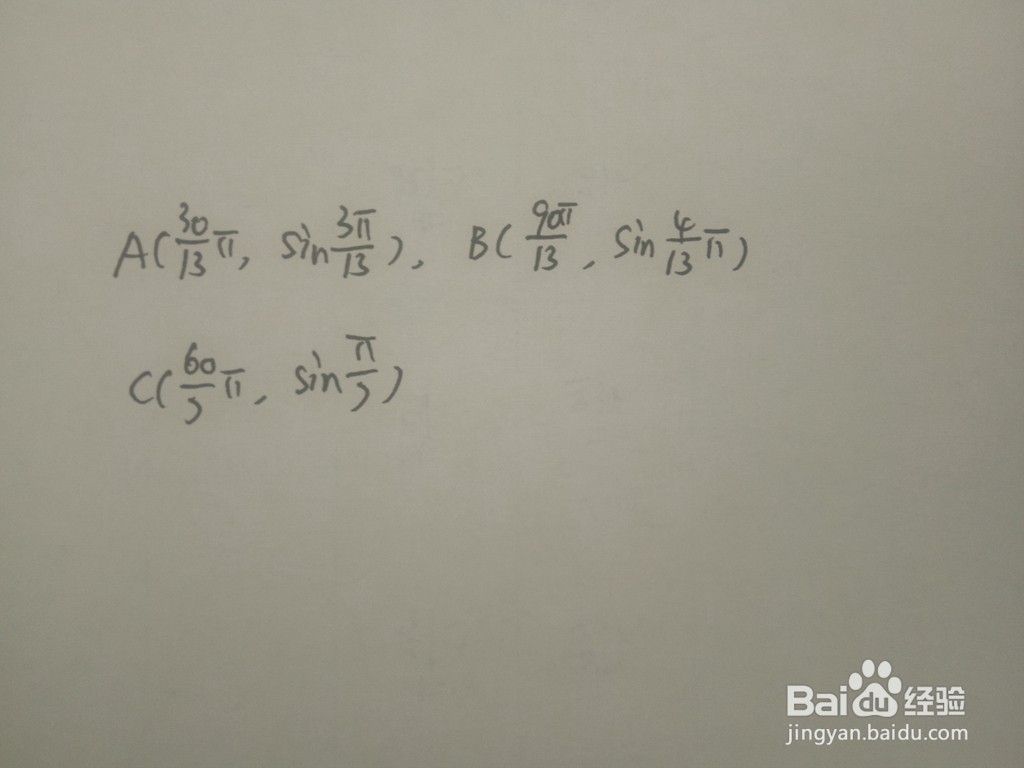 A(30/13 π, sin 3π/13), B(90π/13, sin 4/13 π)
C(60/5 π, sin π/5)
Bai du 经验
jingyan.baidu.com